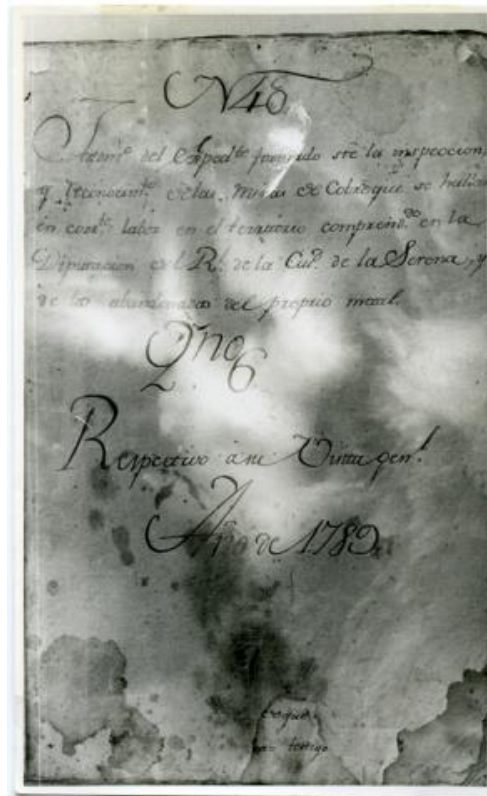 N 48
Testimo. del Exped.te formado sre. la inspeccion,
y reconocim.to de las Minas de Cobre que se hallan
en corr.te labor en el territorio comprend.do en la
Diputacion del Rl. de la Ciud. de la Serena, y
de las abandonadas del proprio metal.
Qno.
6
Respectivo a su Visita gen.l
Año de 1789